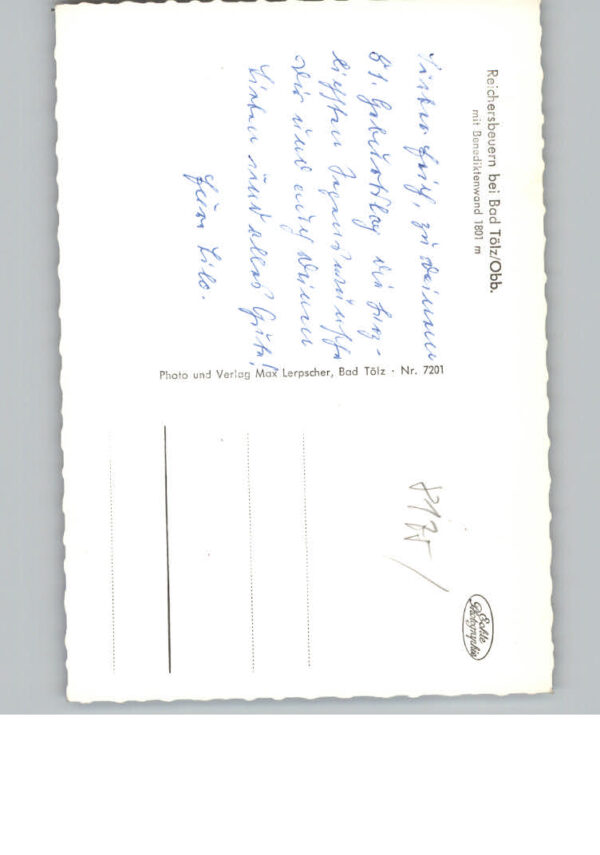 Reichersbeuern bei Bad Tölz/Obb.
mit Benediktenwand 1801 m
zu Deinem
81. Geburtstag die herz-
lichsten Segenswünsche
Dir und auch Deinen
Lieben und alles Gute!
Lilo.
Photo und Verlag Max Lerpscher, Bad Tölz · Nr. 7201
Echte
Photographie